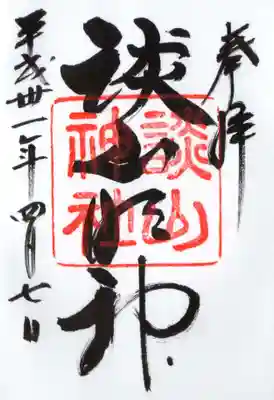 奉拝
談山明神
談山神社
平成卅一年 四月七日